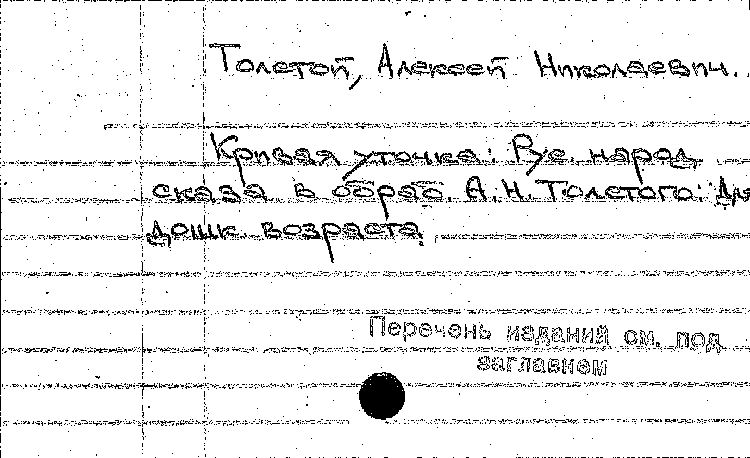 Толстой, Алексей Николаевич..
Кривая уточка: Рус. народ.
сказа в обраб. А.Н. Толстого: Для
дошк. возраста.
Перечень изданий см. под
заглавием